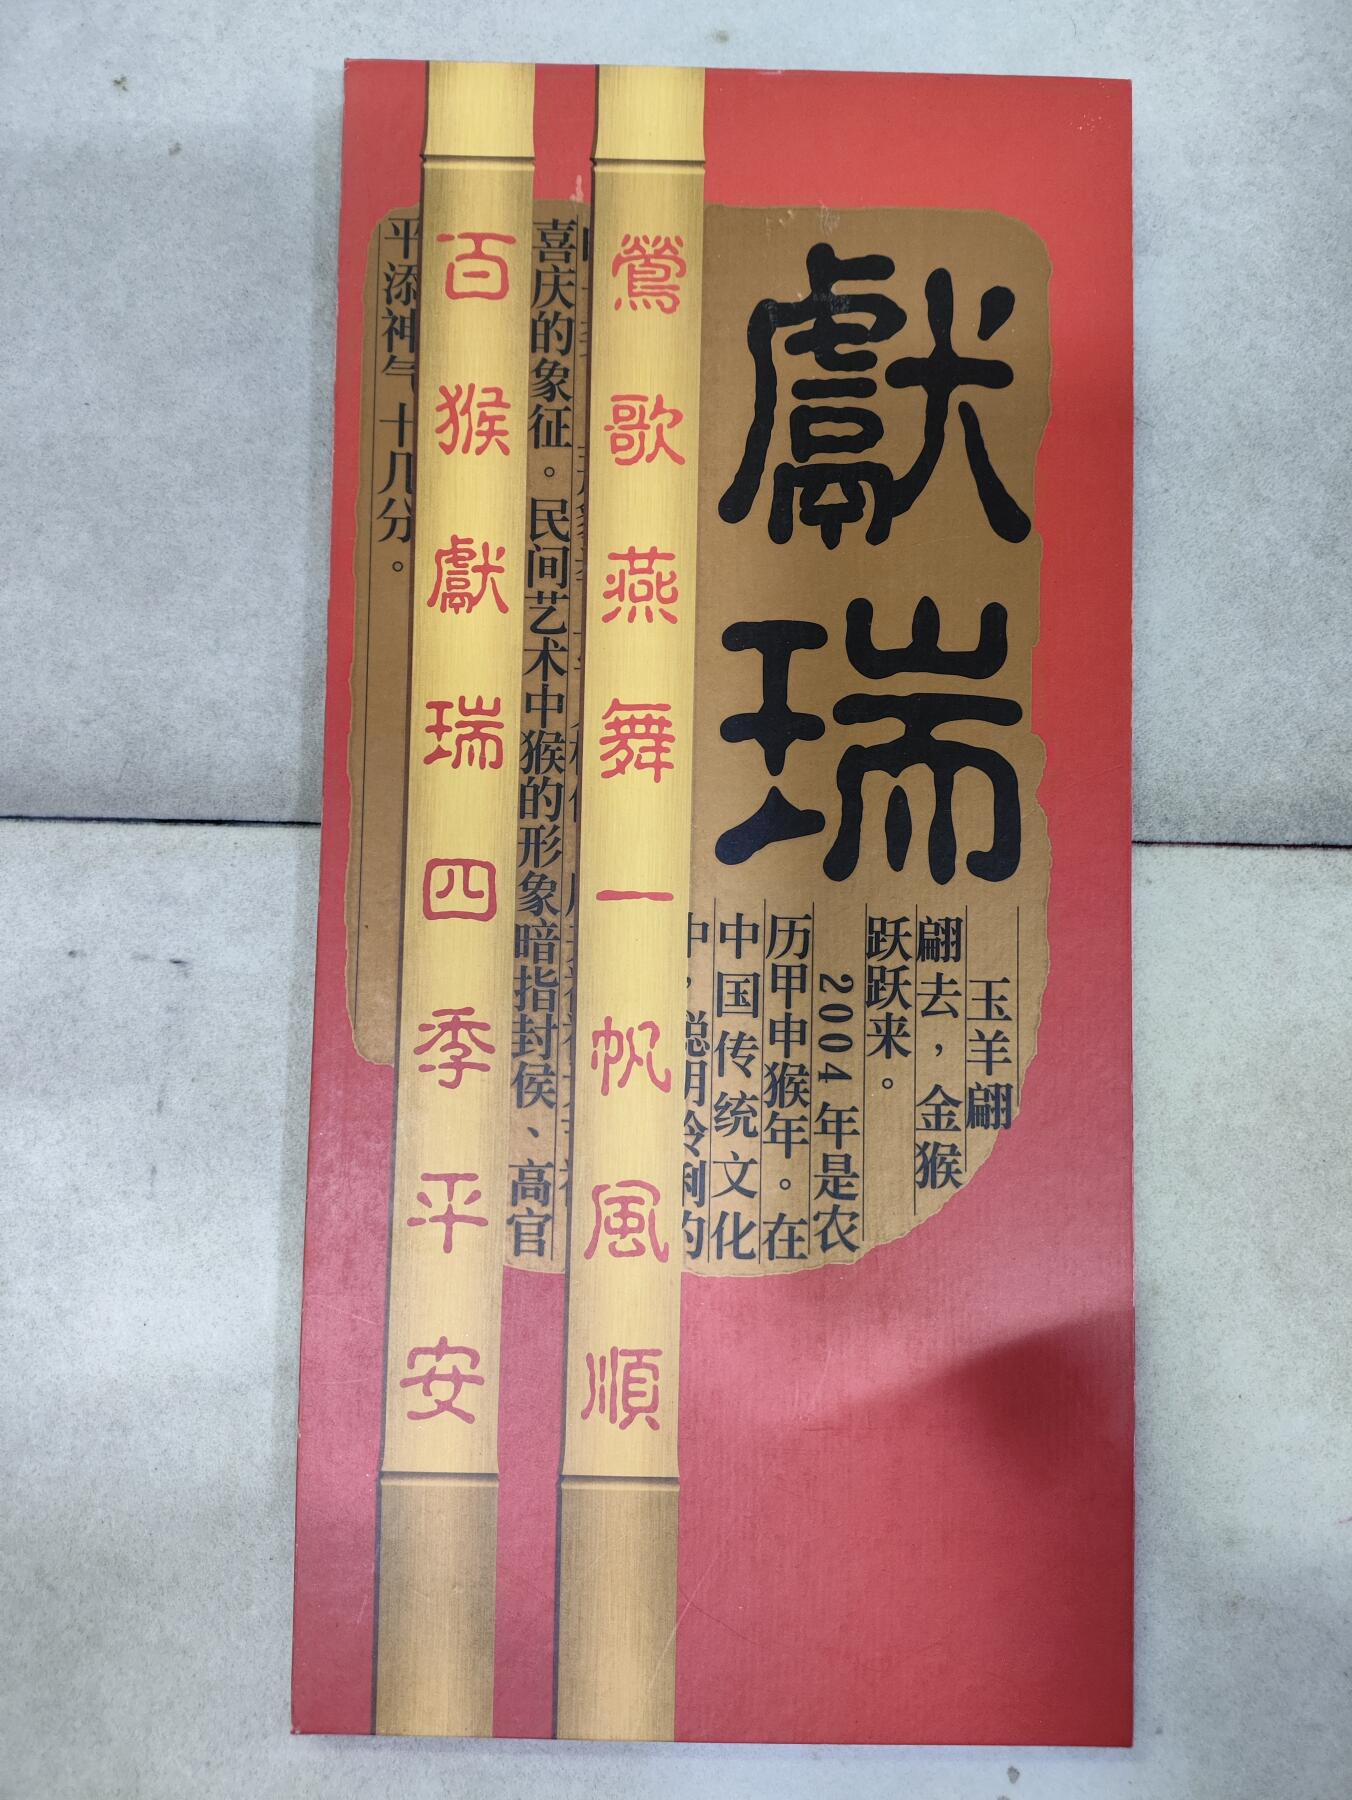 獻瑞
玉羊翩
翩去，金猴
跃跃来。
2004年是农
历甲申猴年。在
中国传统文化
中，聪明伶俐的
鶯歌燕舞一帆風順
喜庆的象征。民间艺术中猴的形象暗指封侯、高官
百猴獻瑞四季平安
平添神气十几分。